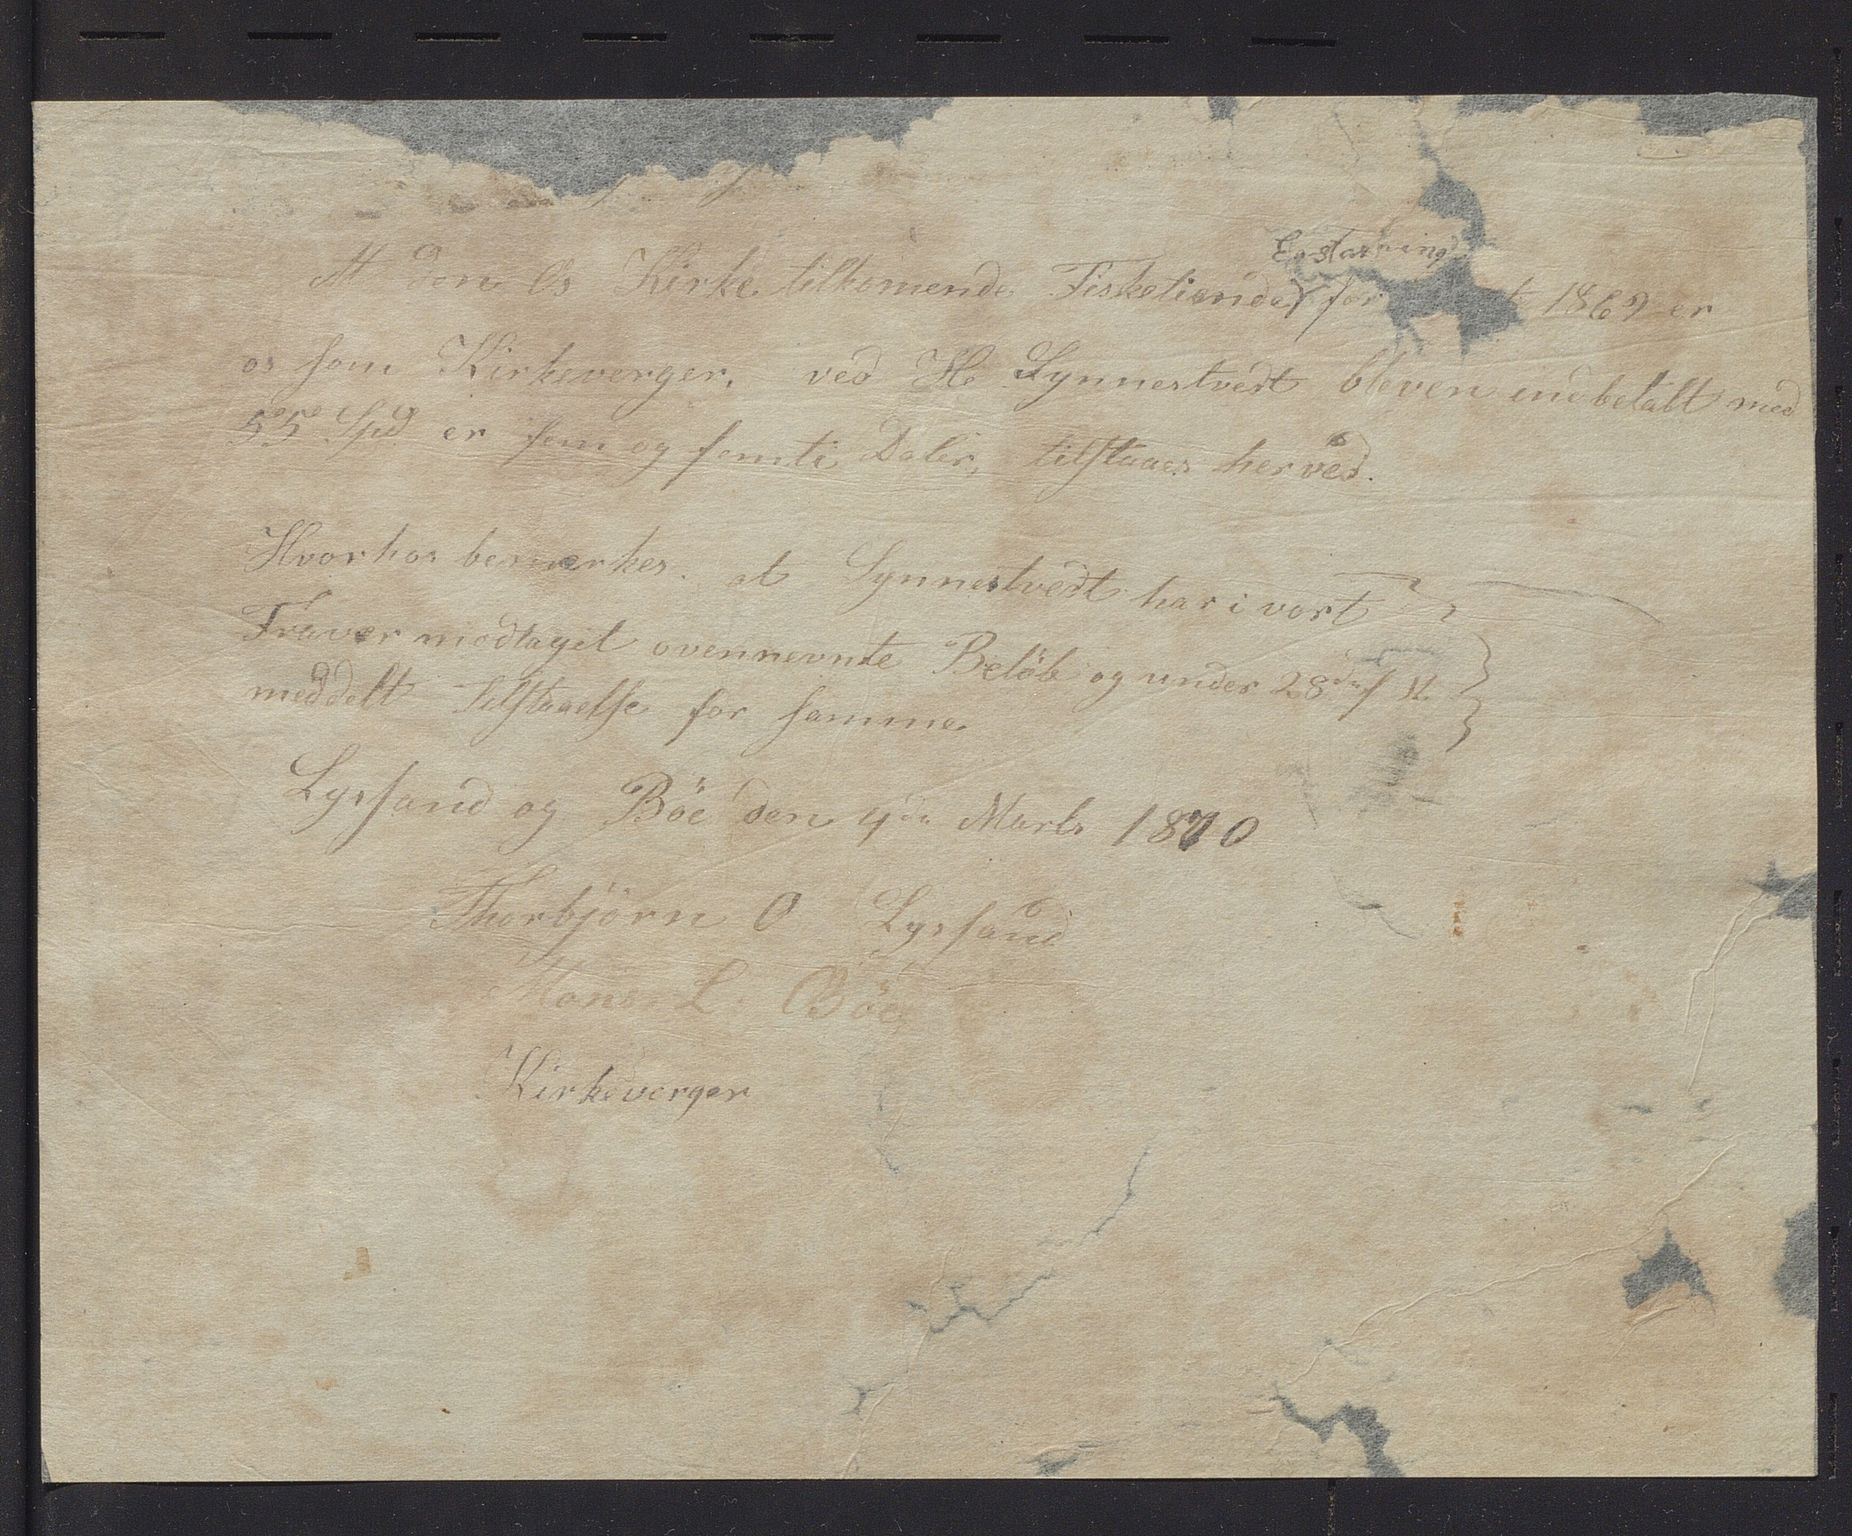 Erstatning
At den Os Kirke tilkomende Fisketiende / for 1869 er
os som Kirkeverger, ved H. Lynnestvedt bleven indbetalt med
55 Spd er fem og femti Daler, tilstaaes herved.
Hvorhos bemærkes. at Lynnestvedt har i vort
Fravær modtaget ovennevnte Beløb og under 28de f. M.
meddelt Tilstaaelse for samme.
Lyssand og Böe den 4de Marts 1870
Thorbjörn O Lyssand
Mons L. Böe
Kirkeverger